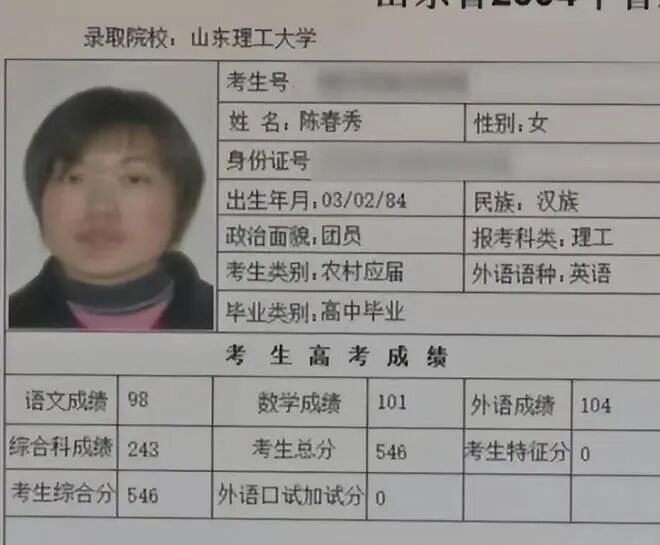 录取院校：山东理工大学
考生号
姓 名：陈春秀 性别：女
身份证号
出生年月：03/02/84 民族：汉族
政治面貌：团员 报考科类：理工
考生类别：农村应届 外语语种：英语
毕业类别：高中毕业
考 生 高 考 成 绩
语文成绩 98 数学成绩 101 外语成绩 104
综合科成绩 243 考生总分 546 考生特征分 0
考生综合分 546 外语口试加试分 0